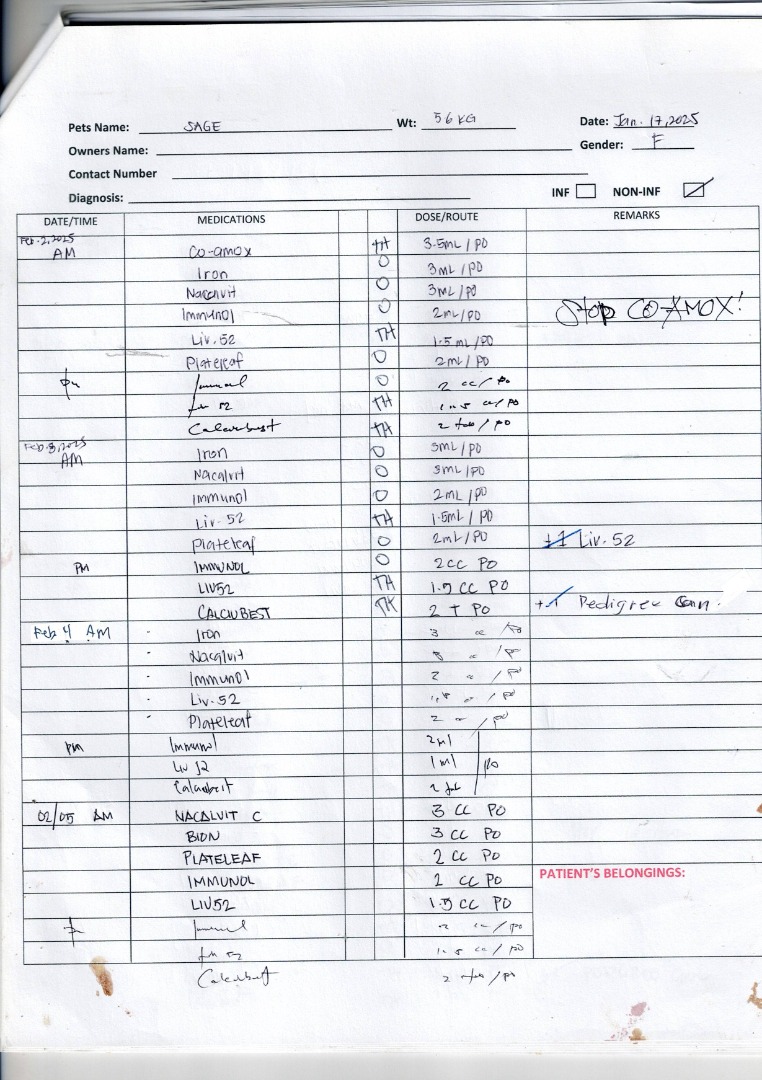 Pets Name: SAGE Wt: 56 KG Date: Jan. 17, 2025
Owners Name: Gender: F
Contact Number
Diagnosis: INF NON-INF
DATE/TIME MEDICATIONS DOSE/ROUTE REMARKS
Feb. 2, 2025
AM Co-amox TH 3.5mL / PO
Iron O 3mL / PO
Nacalvit O 3mL / PO
Immunol O 2mL / PO Stop CO-AMOX!
Liv. 52 TH 1.5 mL / PO
Plateleaf O 2mL / PO
pm Immunol O 2 cc / PO
Liv 52 TH 1.5 cc / PO
Calciubest TH 2 tab / PO
Feb. 3, 2025
AM Iron O 3mL / PO
Nacalvit O 3mL / PO
Immunol O 2mL / PO
Liv. 52 TH 1.5mL / PO
Plateleaf O 2mL / PO +1 Liv. 52
PM IMMUNOL O 2cc PO
LIV52 TH 1.5 cc PO
CALCIUBEST TH 2 T PO +1 Pedigree Can.
Feb 4 AM - Iron 3 cc / PO
- Nacalvit 3 cc / PO
- Immunol 2 cc / PO
- Liv. 52 1.5 cc / PO
- Plateleaf 2 cc / PO
pm Immunol 2ml
Liv 52 1 ml / po
Calciubest 2 tab
02/05 AM NACALVIT C 3 CC PO
BION 3 CC PO
PLATELEAF 2 CC PO
IMMUNOL 2 CC PO
PATIENT'S BELONGINGS:
LIV52 1.5 CC PO
Immunol 2 cc / po
Liv 52 1.5 cc / po
Calciubest 2 tab / po